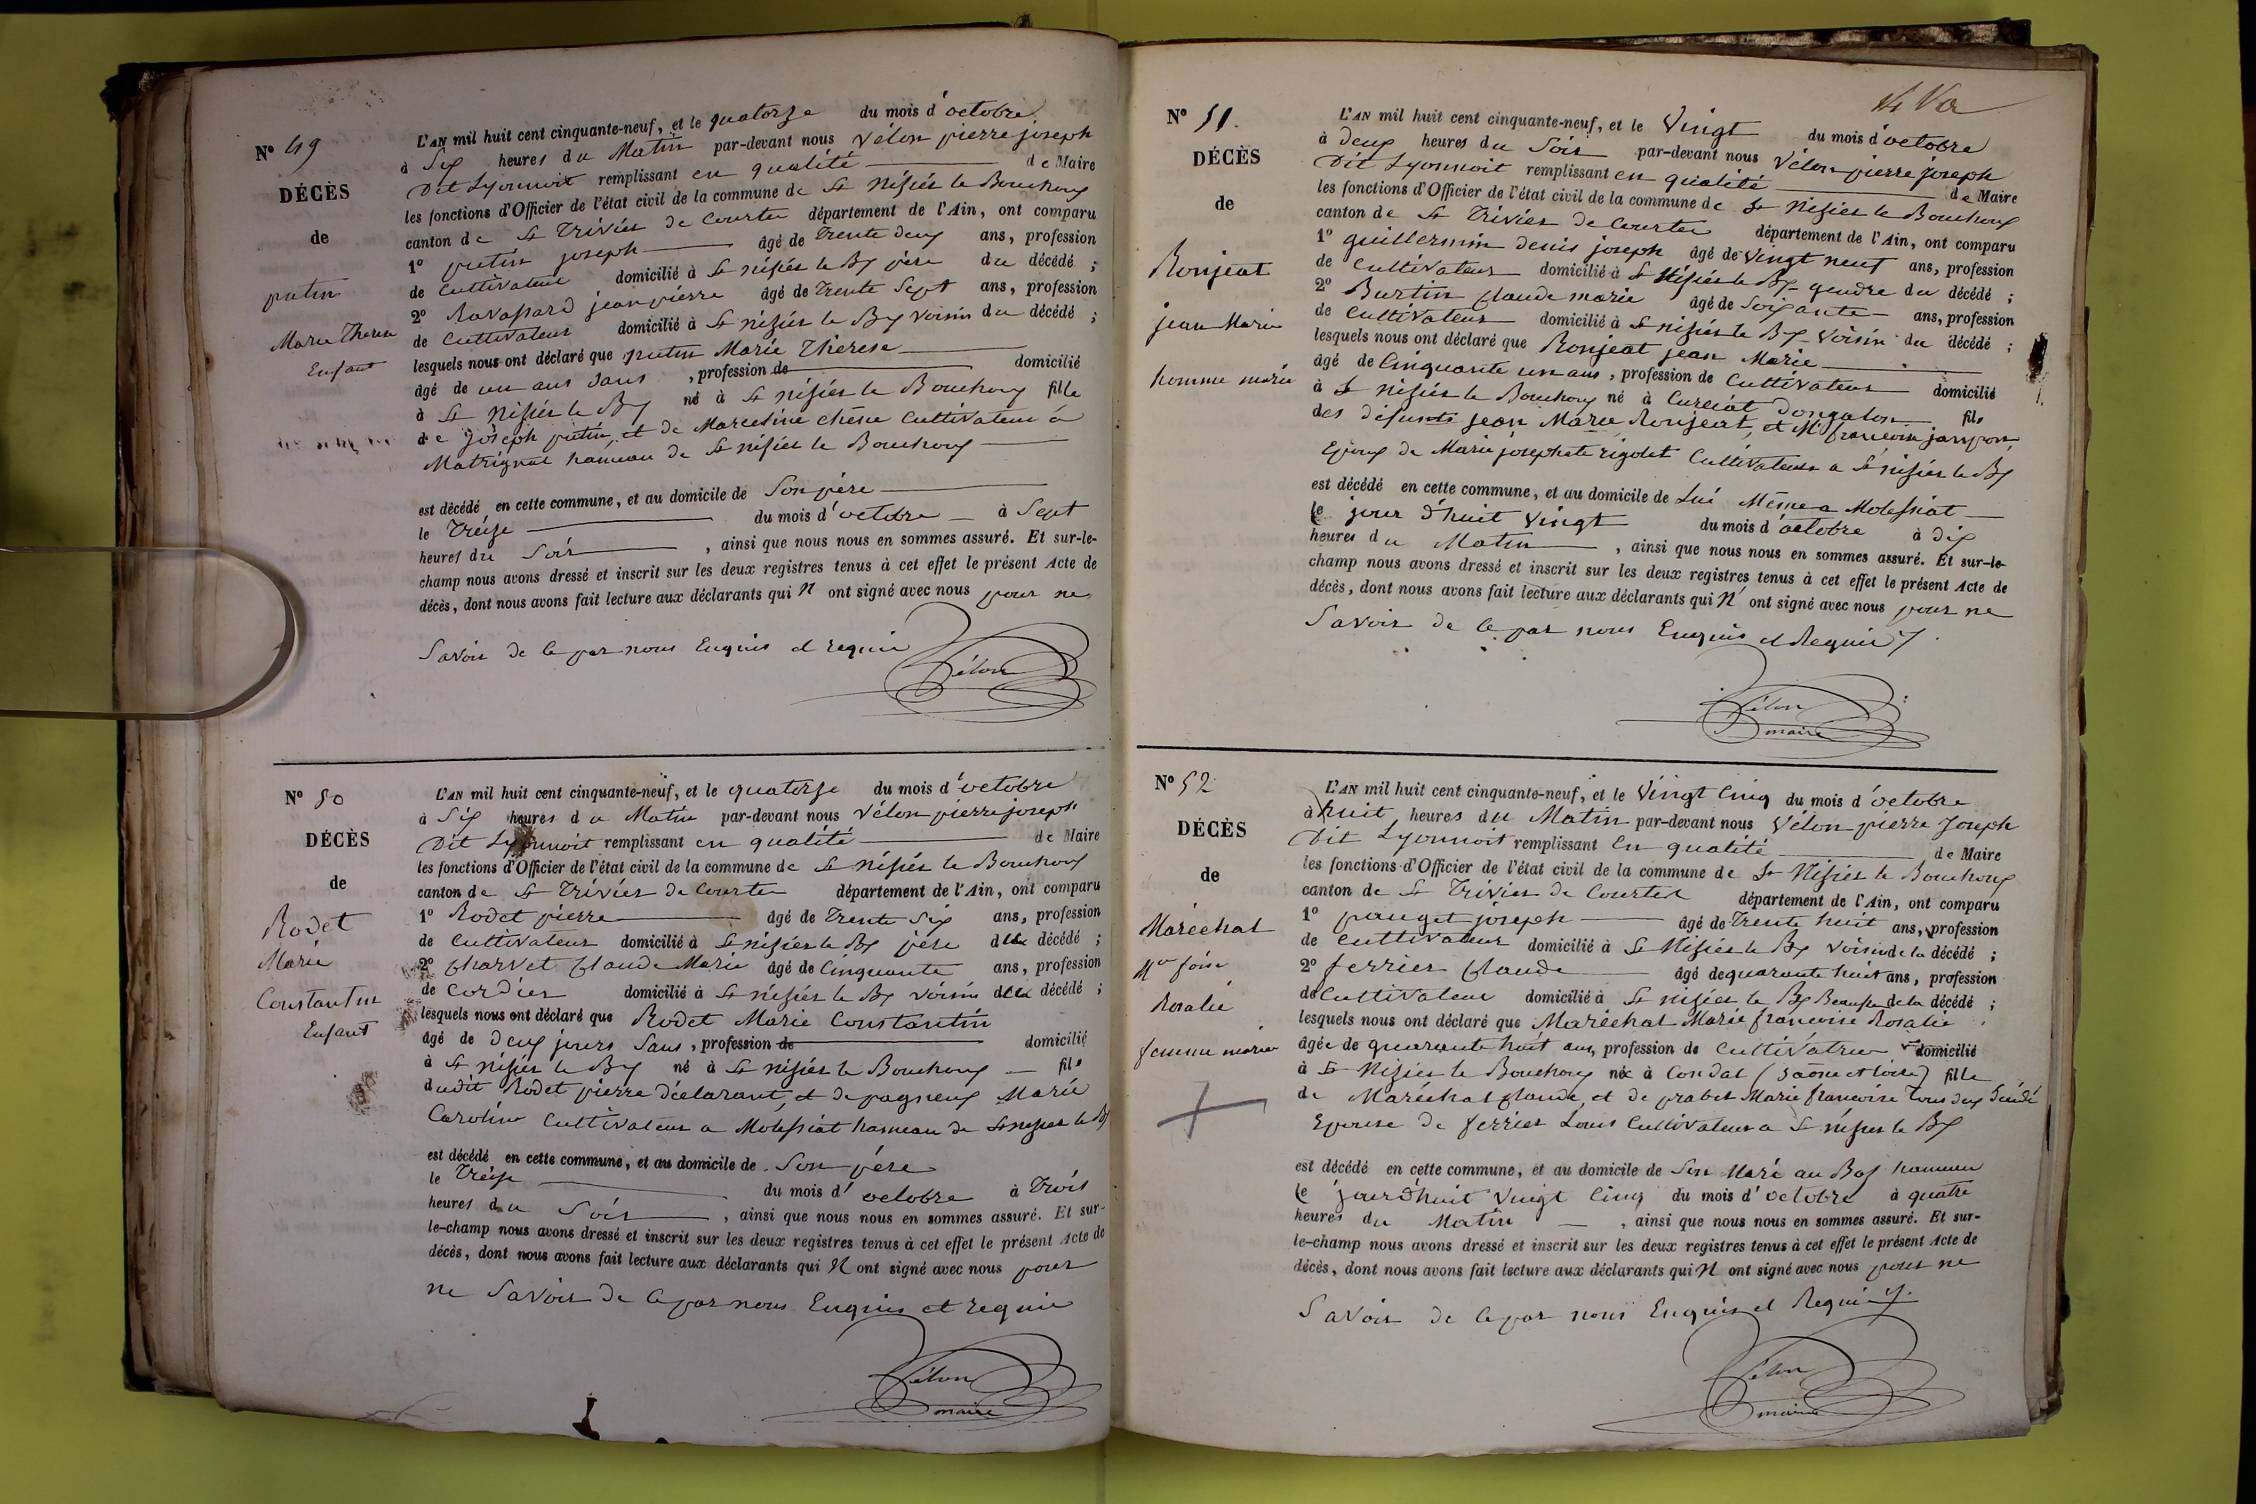 N° 49
DÉCÈS
de
putin
Marie Therese
Enfant
L'AN mil huit cent cinquante-neuf, et le quatorze du mois d'octobre
à Six heures du Matin par-devant nous Vélon pierre joseph
Dit Lyonnoit remplissant en qualité de Maire
les fonctions d'Officier de l'état civil de la commune de St Nisiés le Bouchoux
canton de St Triviés de Courtes département de l'Ain, ont comparu
1° putin joseph âgé de Trente deux ans, profession
de Cultivateur domicilié à St nisiés le Bx père du décédé ;
2° Ravassard jean pierre âgé de Trente Sept ans, profession
de Cultivateur domicilié à St nisiés le Bx Voisin du décédé ;
lesquels nous ont déclaré que putin Marie Thérese
âgé de un ans Sans , profession de domicilié
à St Nisiés le Bx né à St nisiés le Bouchoux fille
de joseph putin, et de Marceline chêne Cultivateur à
Matrignat hameau de St nisiés le Bouchoux
est décédé en cette commune, et au domicile de Son père
le Tréize du mois d'octobre à Sept
heures du Soir , ainsi que nous nous en sommes assuré. Et sur-le-
champ nous avons dressé et inscrit sur les deux registres tenus à cet effet le présent Acte de
décès, dont nous avons fait lecture aux déclarants qui N ont signé avec nous pour ne
Savoir de ce par nous Enquis et requis
Vélon
N° 50
DÉCÈS
de
Rodet
Marie
Constantin
Enfant
L'AN mil huit cent cinquante-neuf, et le quatorze du mois d'octobre
à Six heures du Matin par-devant nous Vélon pierre joseph
Dit Lyonnoit remplissant en qualité de Maire
les fonctions d'Officier de l'état civil de la commune de St Nisiés le Bouchoux
canton de St Triviés de Courtes département de l'Ain, ont comparu
1° Rodet pierre âgé de Trente Six ans, profession
de Cultivateur domicilié à St nisiés le Bx père du décédé ;
2° Charvet Claude Marie âgé de Cinquante ans, profession
de Cordier domicilié à St nisiés le Bx Voisin du décédé ;
lesquels nous ont déclaré que Rodet Marie Constantin
âgé de Deux jours Sans , profession de domicilié
à St nisiés le Bx né à St nisiés le Bouchoux fils
dudit Rodet pierre déclarant, et de pagneux Marie
Caroline Cultivateur a Molessiat hameau de St nisiés le Bx
est décédé en cette commune, et au domicile de Son père
le Tréize du mois d'octobre à Trois
heures du Soir , ainsi que nous nous en sommes assuré. Et sur-
le-champ nous avons dressé et inscrit sur les deux registres tenus à cet effet le présent Acte de
décès, dont nous avons fait lecture aux déclarants qui N ont signé avec nous pour
ne Savoir de ce par nous Enquis et requis
Vélon
maire
N° 51.
DÉCÈS
de
Ronjeat
jean Marie
homme marié
L'AN mil huit cent cinquante-neuf, et le Vingt du mois d'octobre
à Deux heures du Soir par-devant nous Vélon pierre joseph
Dit Lyonnoit remplissant en qualité de Maire
les fonctions d'Officier de l'état civil de la commune de St Nisiés le Bouchoux
canton de St Triviés de Courtes département de l'Ain, ont comparu
1° guillermin denis joseph âgé de Vingt neuf ans, profession
de Cultivateur domicilié à St Nisiés le Bx gendre du décédé ;
2° Burtin Claude marie âgé de Soixante ans, profession
de Cultivateur domicilié à St nisiés le Bx Voisin du décédé ;
lesquels nous ont déclaré que Ronjeat jean Marie
âgé de Cinquante un ans , profession de Cultivateur domicilié
à St nisiés le Bouchoux né à Curciat Dongalon fils
des défunts jean Marie Ronjeat, et Mie francoise janpon
Epoux de Marie josephete rigolet Cultivateurs a St nisiés le Bx
est décédé en cette commune, et au domicile de Lui Même a Molessiat
le jour d'huit Vingt du mois d'octobre à dix
heures du Matin , ainsi que nous nous en sommes assuré. Et sur-le-
champ nous avons dressé et inscrit sur les deux registres tenus à cet effet le présent Acte de
décès, dont nous avons fait lecture aux déclarants qui N' ont signé avec nous pour ne
Savoir de ce par nous Enquis et Requis
Vélon
maire
N° 52
DÉCÈS
de
Maréchal
Mie foise
Rosalie
femme marié
L'AN mil huit cent cinquante-neuf, et le Vingt Cinq du mois d'octobre
à huit heures du Matin par-devant nous Vélon pierre Joseph
Dit Lyonnoit remplissant en qualité de Maire
les fonctions d'Officier de l'état civil de la commune de St Nisiés le Bouchoux
canton de St Triviés de Courtes département de l'Ain, ont comparu
1° pauget joseph âgé de Trente huit ans, profession
de cultivateur domicilié à St Nisiés le Bx Voisin de la décédé ;
2° ferrier Claude âgé de quarante huit ans, profession
de Cultivateur domicilié à St nisiés le Bx Beaufre de la décédé ;
lesquels nous ont déclaré que Maréchal Marie francoise Rosalie
âgée de quarante huit ans, profession de Cultivatrice domicilié
à St Nisiés le Bouchoux né à Condal (Saône et loire) fille
de Maréchal Claude, et de prabet Marie francoise Tous deux
Epouse de ferrier Louis Cultivateur a St nisiés le Bx
est décédé en cette commune, et au domicile de Son Marie au Bos hameau
le jourd'huit Vingt Cinq du mois d'octobre à quatre
heures du Matin , ainsi que nous nous en sommes assuré. Et sur-
le-champ nous avons dressé et inscrit sur les deux registres tenus à cet effet le présent Acte de
décès, dont nous avons fait lecture aux déclarants qui N ont signé avec nous pour ne
Savoir de ce par nous Enquis et Requis
Vélon
maire